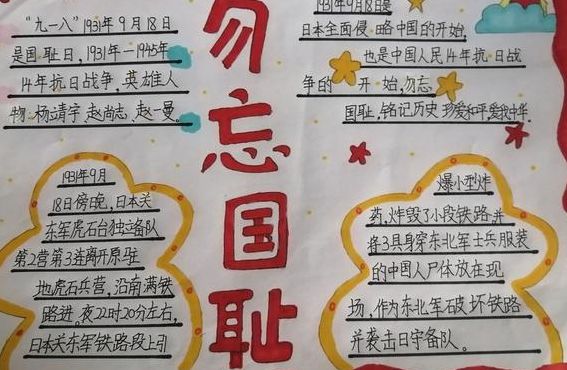 "九一八"1931年9月18日
是国耻日，1931年—1945年
14年抗日战争，英雄人
物：杨靖宇 赵尚志，赵一曼。
勿忘国耻
1931年9月18日是
日本全面侵略中国的开始，
也是中国人民14年抗日战
争的开始，勿忘
国耻，铭记历史 珍爱和平，爱我中华。
1931年9月
18日傍晚，日本关
东军虎石台独立备队
第2营第3连离开原驻
地虎石兵营，沿南满铁
路进。夜22时20分左右，
日本关东军铁路段上引
爆小型炸
药，炸毁了小段铁路并
将3具身穿东北军士兵服装
的中国人尸体放在现
场，作为东北军破坏铁路
并袭击日守备队。